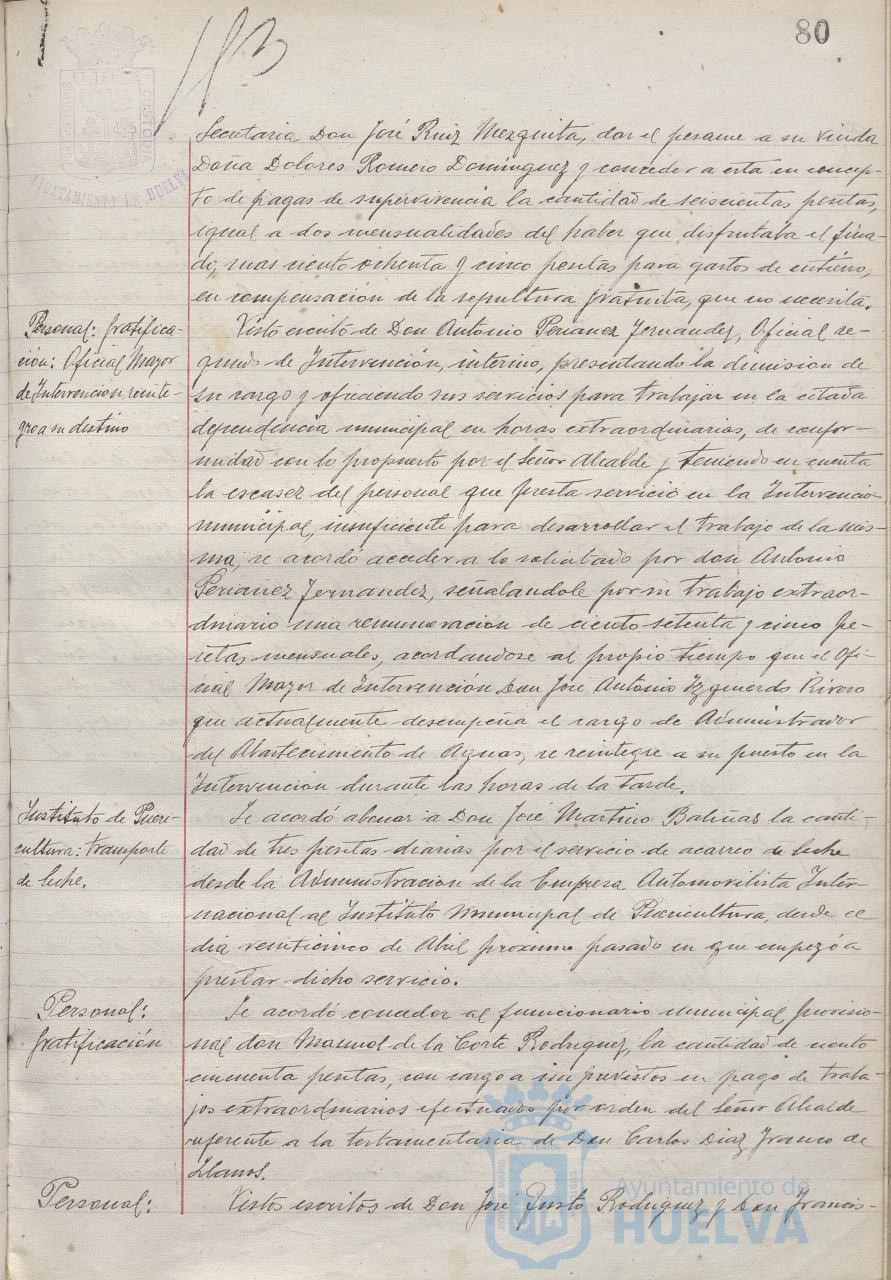 80
113
PORTUS MARIS ET TERRAE CUSTODIA
AYUNTAMIENTO DE HUELVA
Secretaria Don José Ruiz Mezquita, dar el pesame a su viuda
Doña Dolores Romero Dominguez y conceder a esta en concep-
to de pagas de supervivencia la cantidad de seiscientas pesetas,
igual a dos mensualidades del haber que disfrutaba el fina-
do, mas ciento ochenta y cinco pesetas para gastos de entierro,
en compensación de la sepultura gratuita, que no necesita.
Personal: Gratifica-
ción: Oficial Mayor
de Intervencion reinte-
gro a su destino
Visto escrito de Don Antonio Periañez Fernandez, Oficial se-
gundo de Intervención, interino, presentando la dimision de
su cargo y ofreciendo sus servicios para trabajar en la citada
dependencia municipal en horas extraordinarias, de confor-
midad con lo propuesto por el Señor Alcalde y teniendo en cuenta
la escasez del personal que presta servicio en la Intervencion
municipal, insuficiente para desarrollar el trabajo de la mis-
ma, se acordó acceder a lo solicitado por don Antonio
Periañez Fernandez, señalandole por su trabajo extraor-
dinario una remuneracion de ciento setenta y cinco pe-
setas mensuales, acordandose al propio tiempo que el Ofi-
cial Mayor de Intervención Don José Antonio Yzquierdo Rivero
que actualmente desempeña el cargo de Administrador
del Abastecimiento de Aguas, se reintegre a su puesto en la
Intervencion durante las horas de la tarde.
Instituto de Pueri-
cultura: transporte
de leche.
Se acordó abonar a Don José Martino Baliñas la canti-
dad de tres pesetas diarias por el servicio de acarreo de leche
desde la Administracion de la Empresa Automovilista Inter-
nacional al Instituto Municipal de Puericultura, desde el
dia veinticinco de Abril proximo pasado en que empezó a
prestar dicho servicio.
Personal:
Gratificación
Se acordó conceder al funcionario municipal provisio-
nal don Manuel de la Corte Rodriguez, la cantidad de ciento
cincuenta pesetas, con cargo a imprevistos en pago de traba-
jos extraordinarios efectuados por orden del Señor Alcalde
referente a la testamentaria de Don Carlos Diaz Franco de
Llanos.
Personal:
Vistos escritos de Don José Justo Rodriguez y Don Francis-
Ayuntamiento de
HUELVA